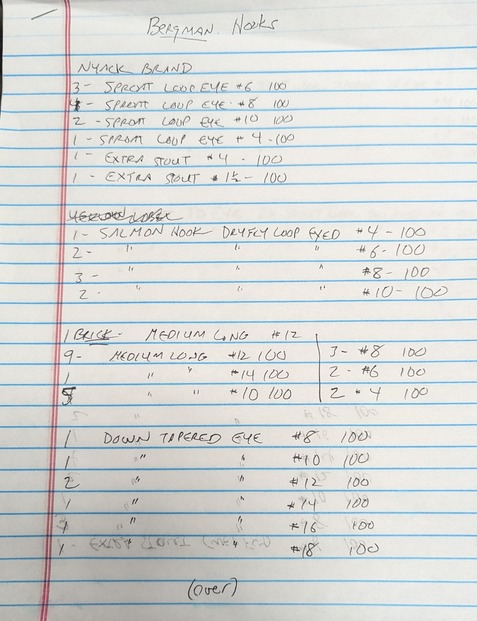 BERGMAN Hooks
NYACK BRAND
3 - SPROAT LOOP EYE #6 100
4 - SPROAT LOOP EYE #8 100
2 - SPROAT LOOP EYE #10 100
1 - SPROAT LOOP EYE #4 - 100
1 - EXTRA STOUT #4 - 100
1 - EXTRA STOUT #1½ - 100
1 - SALMON HOOK DRYFLY LOOP EYED #4 - 100
2 - " " " #6 - 100
3 - " " " #8 - 100
2 - " " " #10 - 100
1 BRICK - MEDIUM LONG #12
9 - MEDIUM LONG #12 100
1 " " #14 100
" " #10 100
3 - #8 100
2 - #6 100
2 #4 100
1 DOWN TAPERED EYE #8 100
1 " " #10 100
2 " " #12 100
1 " " #14 100
" " #16 100
1 " " #18 100
(over)